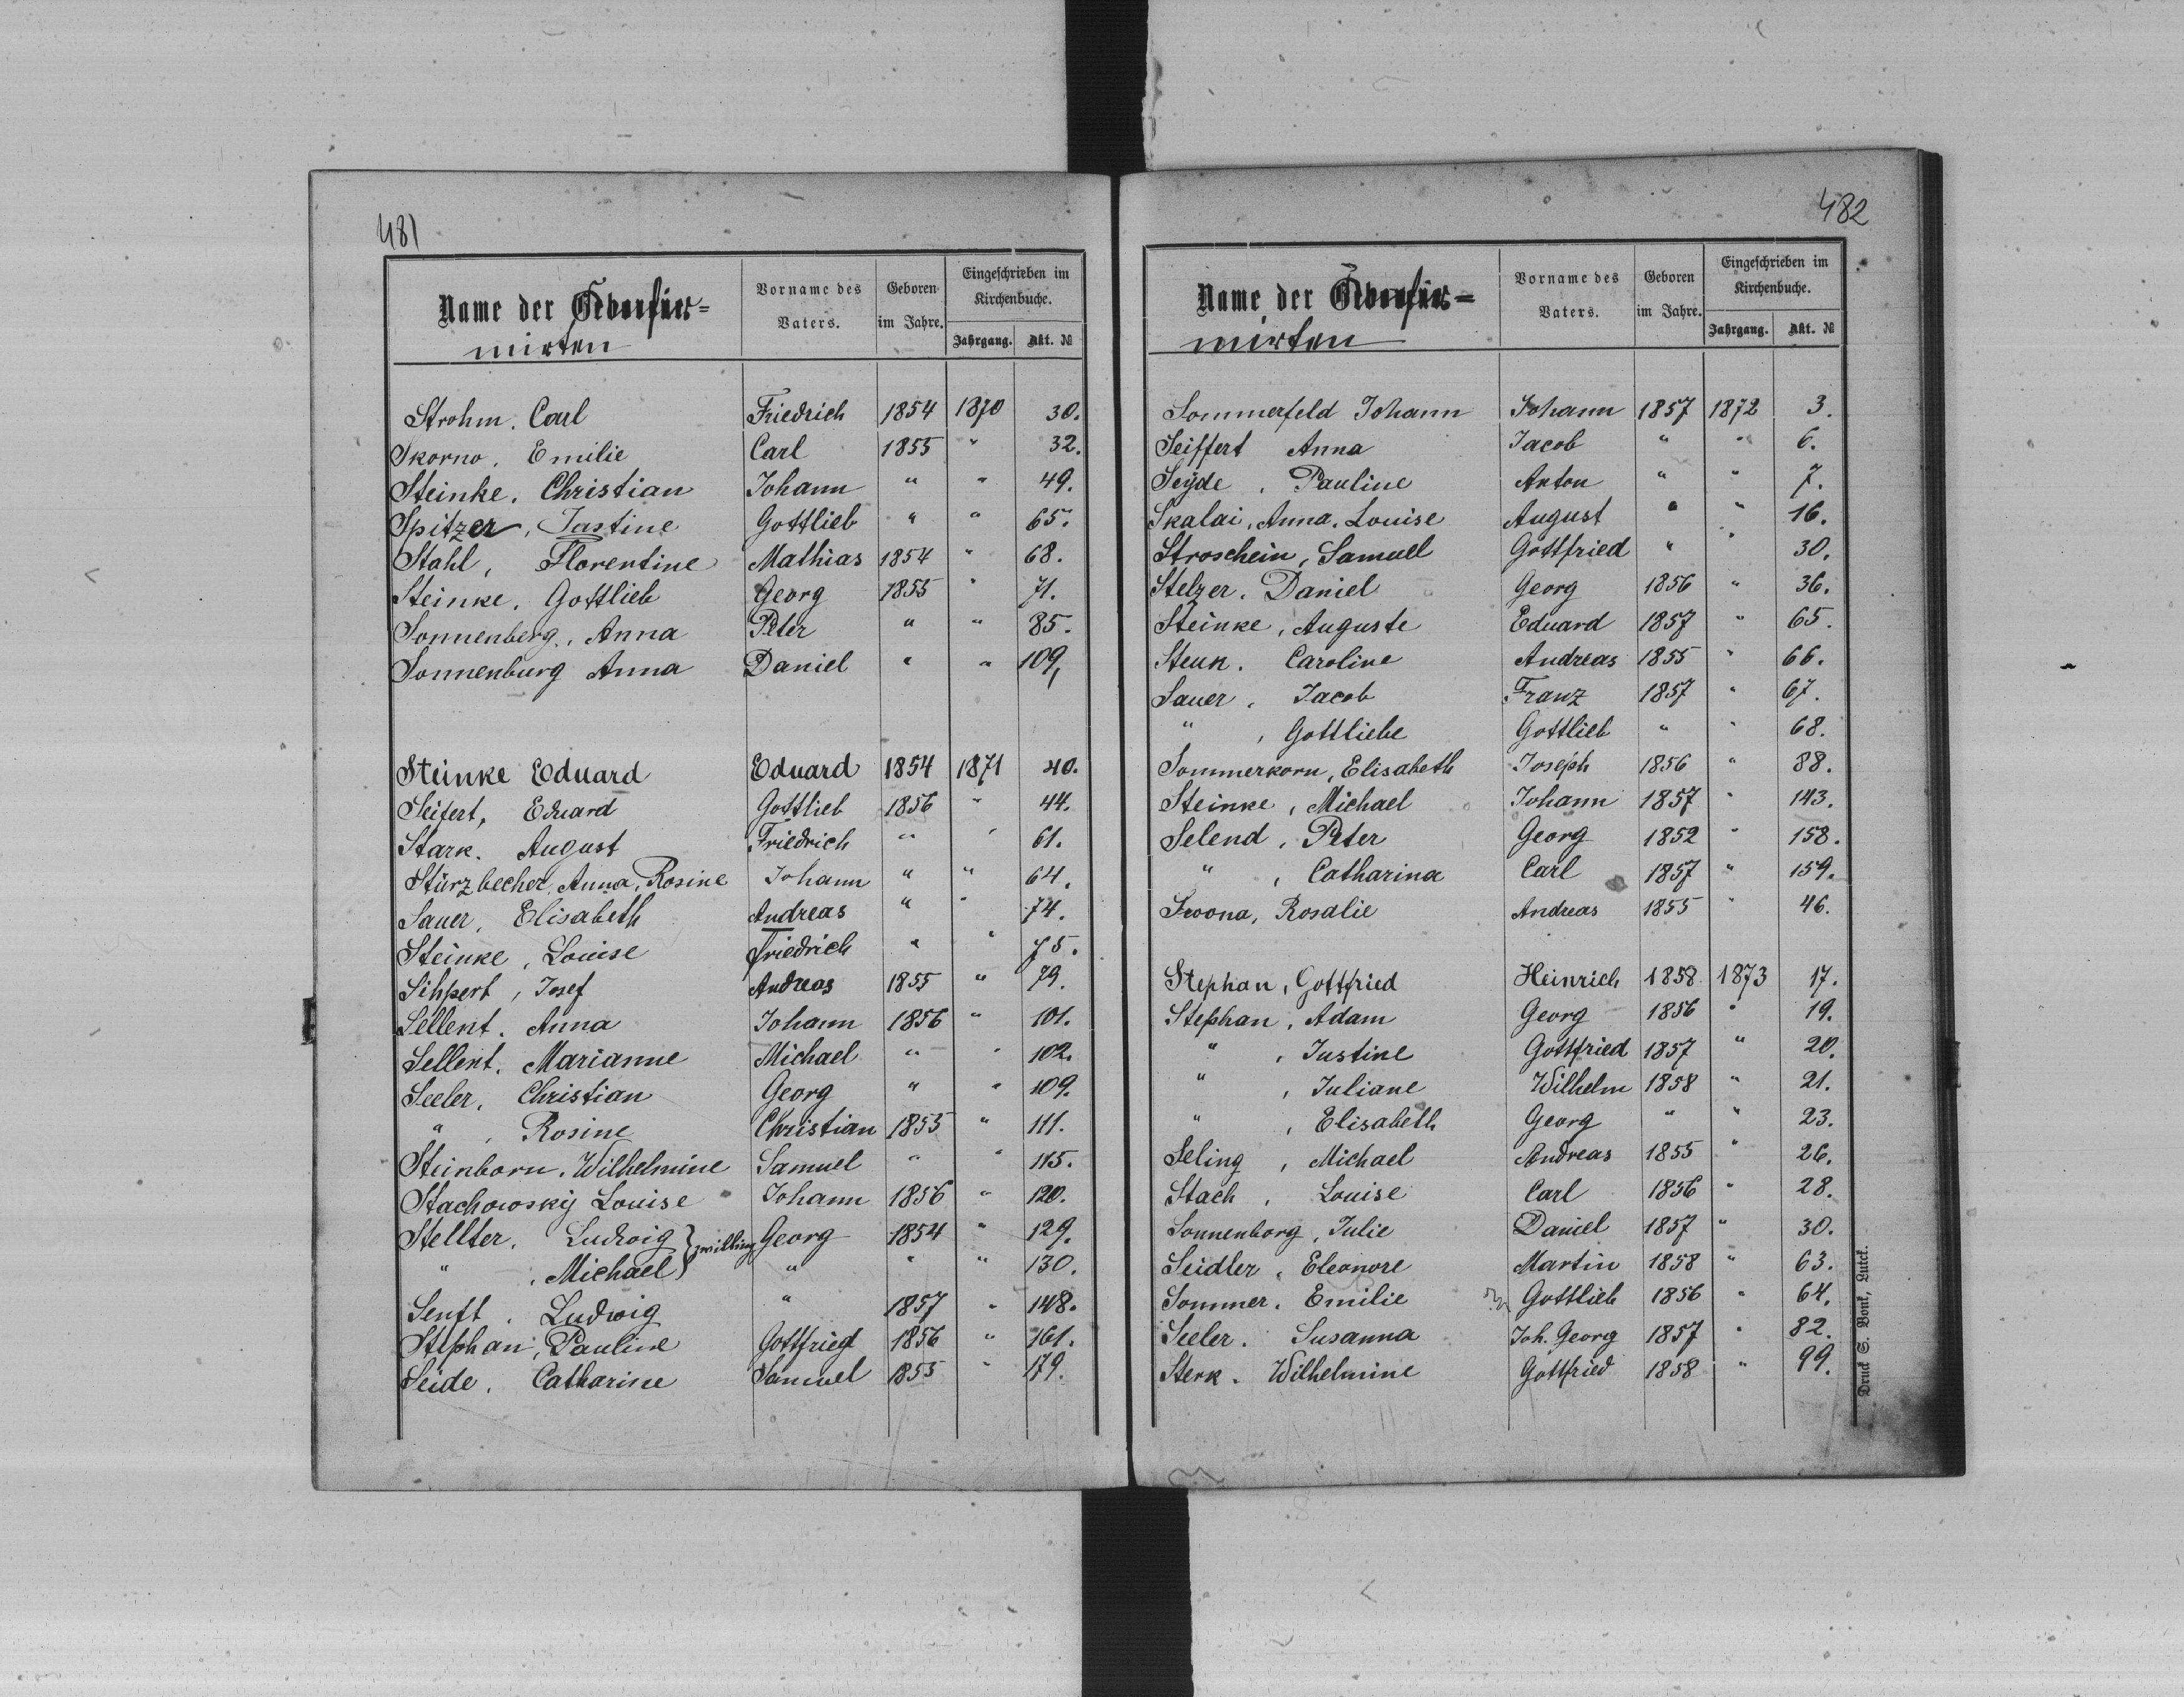 481
Name der
mirten
Vorname des Vaters.
Geboren im Jahre.
Eingeschrieben im Kirchenbuche.
Jahrgang. Akt. №
Strohm. Carl Friedrich 1854 1870 30.
Skorno, Emilie Carl 1855 " 32.
Steinke, Christian Johann " " 49.
Spitzer, Justine Gottlieb " " 65.
Stahl, Florentine Mathias 1854 " 68.
Steinke, Gottlieb Georg 1855 " 71.
Sonnenberg, Anna Peter " " 85.
Sonnenburg Anna Daniel " " 109,
Steinke Eduard Eduard 1854 1871 40.
Seifert, Eduard Gottlieb 1856 " 44.
Stark. August Friedrich " " 61.
Stürzbecher, Anna, Rosine Johann " " 64.
Sauer, Elisabeth Andreas " " 74.
Steinke, Louise Friedrich " " 75.
Sihpert, Josef Andreas 1855 " 79.
Sellent. Anna Johann 1856 " 101.
Sellent. Marianne Michael " " 102.
Seeler, Christian Georg " " 109.
" , Rosine Christian 1855 " 111.
Steinborn. Wilhelmine Samuel " " 115.
Stachowskij Louise Johann 1856 " 120.
Stellter, Ludwig } zwilling Georg 1854 " 129.
" , Michael } " " " 130.
Senft, Ludwig " 1857 " 148.
Stephan, Pauline Gottfried 1856 " 161.
Seide, Catharine Samuel 1855 " 179.
482
Name der
mirten
Vorname des Vaters.
Geboren im Jahre.
Eingeschrieben im Kirchenbuche.
Jahrgang. Akt. №
Sommerfeld Johann Johann 1857 1872 3.
Seiffert Anna Jacob " " 6.
Seyde, Pauline Anton " " 7.
Skalai, Anna, Louise August " " 16.
Stroschein, Samuel Gottfried " " 30.
Stelzer, Daniel Georg 1856 " 36.
Steinke, Auguste Eduard 1857 " 65.
Steuk. Caroline Andreas 1855 " 66.
Sauer, Jacob Franz 1857 " 67.
" , Gottliebe Gottlieb " " 68.
Sommerkorn, Elisabeth Joseph 1856 " 88.
Steinke, Michael Johann 1857 " 143.
Selend, Peter Georg 1852 " 158.
" , Catharina Carl 1857 " 159.
Swona, Rosalie Andreas 1855 " 46.
Stephan, Gottfried Heinrich 1858 1873 17.
Stephan, Adam Georg 1856 " 19.
" , Justine Gottfried 1857 " 20.
" , Juliane Wilhelm 1858 " 21.
" , Elisabeth Georg " " 23.
Seling, Michael Andreas 1855 " 26.
Stach, Louise Carl 1856 " 28.
Sonnenborg, Julie Daniel 1857 " 30.
Seidler, Eleonore Martin 1858 " 63.
Sommer, Emilie Gottlieb 1856 " 64.
Seeler. Susanna Joh. Georg 1857 " 82.
Sterk. Wilhelmine Gottfried 1858 " 99.
Druck S. Bonk, Lutzk.